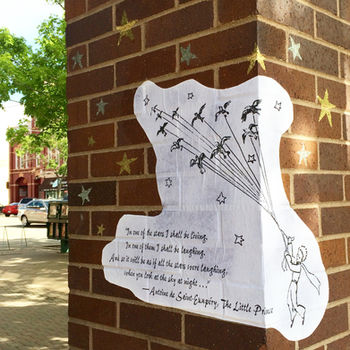 "In one of the stars I shall be living.
In one of them I shall be laughing.
And so it will be as if all the stars were laughing,
when you look at the sky at night..."
—Antoine de Saint-Exupéry, The Little Prince